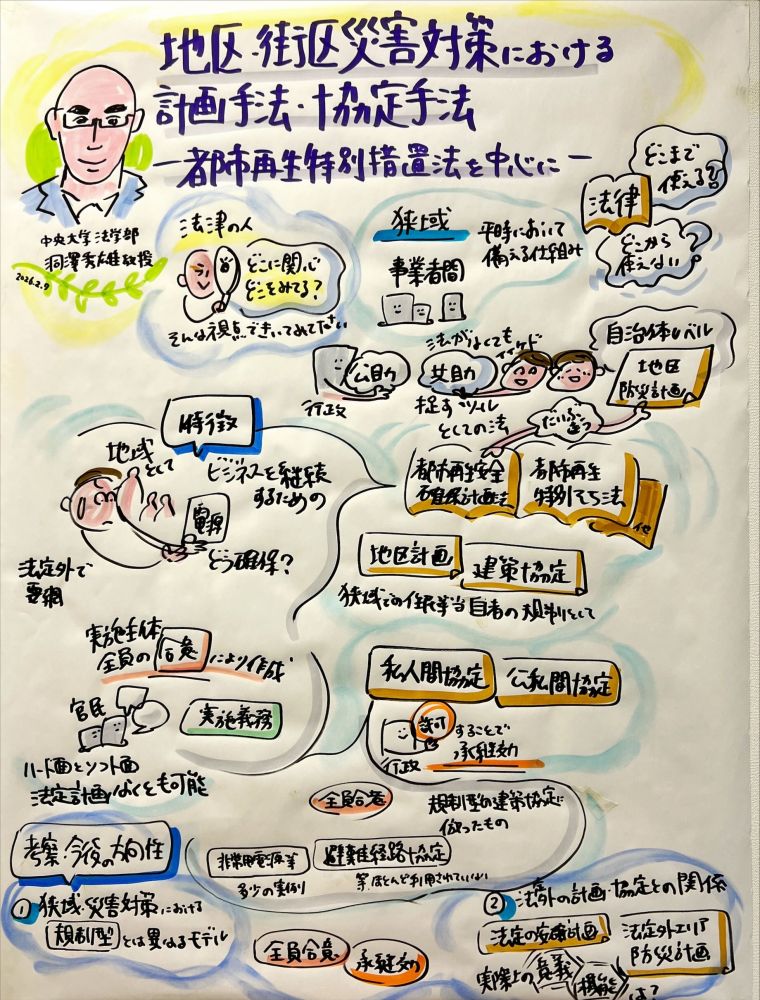 地区・街区災害対策における
計画手法・協定手法
ー都市再生特別措置法を中心にー
中央大学 法学部
洞澤秀雄教授
2026.2.9
法律の人
どこに関心
どこをみてる?
そんな視点できいてみてください
狭域
事業者間
平時において
備える仕組み
法律
どこまで
使える??
どこから
使えない?
行政
公助
共助
法がなくても
イイケド
促すツール
としての法
自治体レベル
地区
防災計画
だいぶ違う
特徴
地域
として
ビジネスを継続
するための
電源
どう確保?
法定外で
要綱
都市再生安全
確保計画法
都市再生
特別そち法
他
地区計画
建築協定
狭域での住民等当自者の規制として
実施主体
全員の合意により作成
官民
実施義務
ハード面とソフト面
法定計画なくとも可能
私人間協定
公私間協定
行政
許可
することで
承継効
全員合意
規制型の建築協定に
倣ったもの
非常用電源等
多少の実例
避難経路協定
等、ほとんど利用されていない
考察・今後の方向性
① 狭域・災害対策における
規制型とは異なるモデル
全員合意
承継効
② 法定外の計画・協定との関係
法定の安確計画
法定外エリア
防災計画
実際上の意義
機能は?